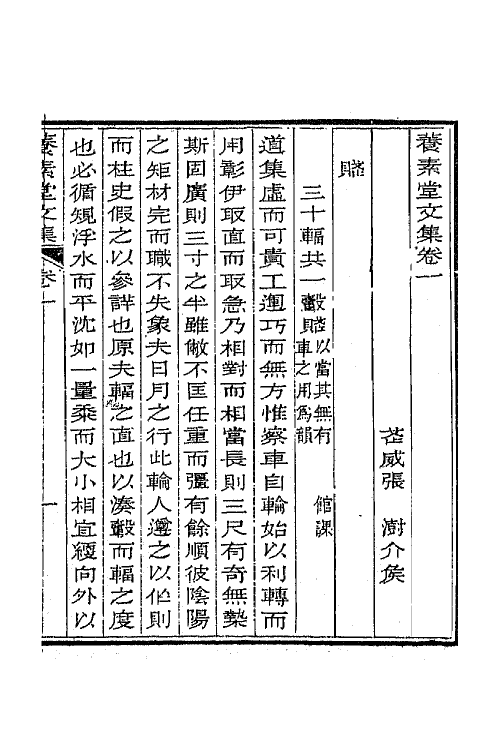 養素堂文集卷一
武威張　澍介侯
賦
三十輻共一轂賦以當其無有車之用為韻　館課
道集虛而可貴工運巧而無方惟察車自輪始以利轉而
用彰伊取直而取急乃相對而相當長則三尺有奇無槷
斯固廣則三寸之半雖敝不匡任重而彊有餘順彼陰陽
之矩材完而職不失象夫日月之行此輪人遵之以作則
而柱史假之以參詳也原夫輻之直也以湊轂而輻之度
也必循規浮水而平沈如一量黍而大小相宜綆向外以
養素堂文集　卷一　一